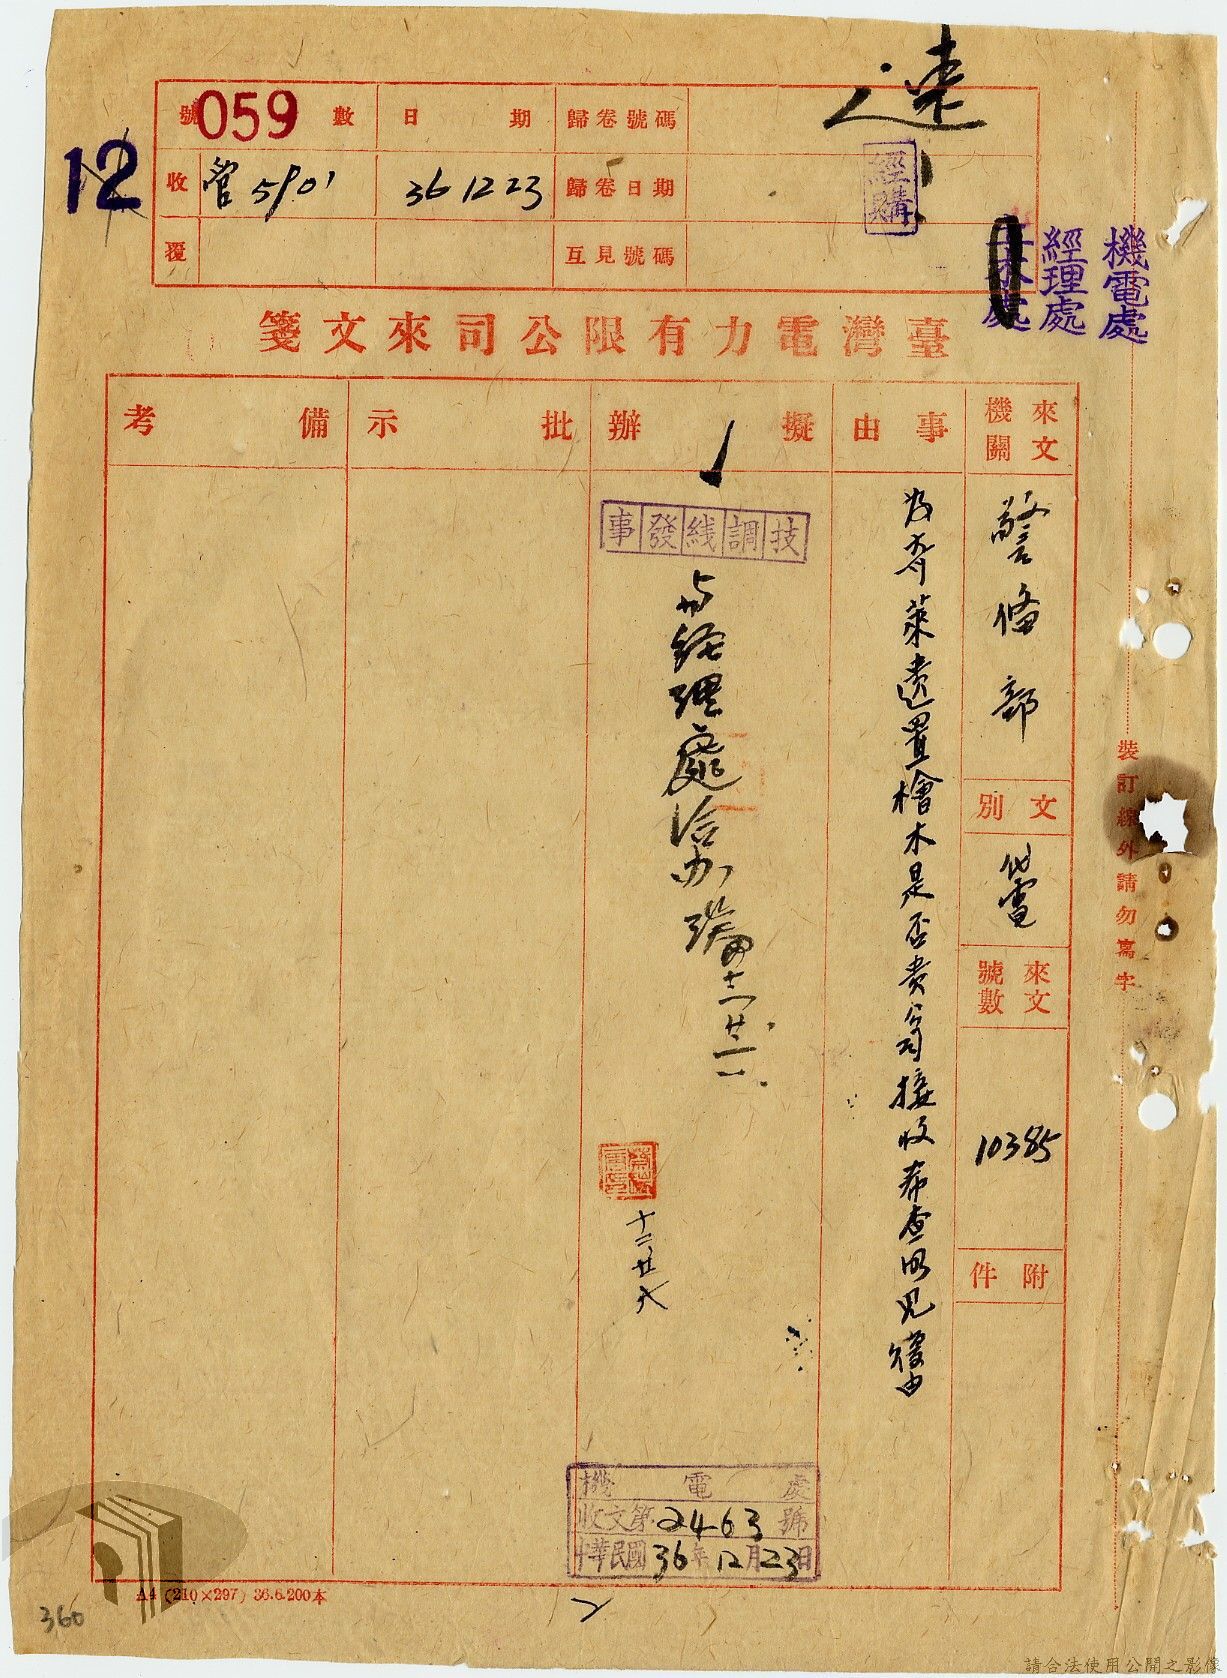 速
經購
機電處
經理處
059
12
號數
日期
歸卷號碼
收
管5901
36 12 23
歸卷日期
覆
互見號碼
臺灣電力有限公司來文箋
來文機關
事由
擬辦
批示
備考
警備部
文別
代電
來文號數
10385
附件
為齊萊遺置檜木是否貴公司接收希查明見復由
技調綫發事
與經理處洽办
十二 廿三
十二、廿六
機電處
收文第2463號
中華民國36年12月23日
裝訂線外請勿寫字
A4 (210×297) 36.6.200本
360
請合法使用公開之影像